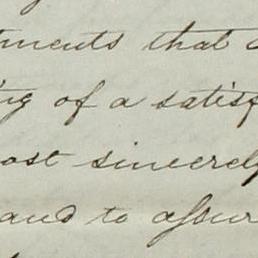 tments that
ing of a satisf
ost sincerely
and to assur